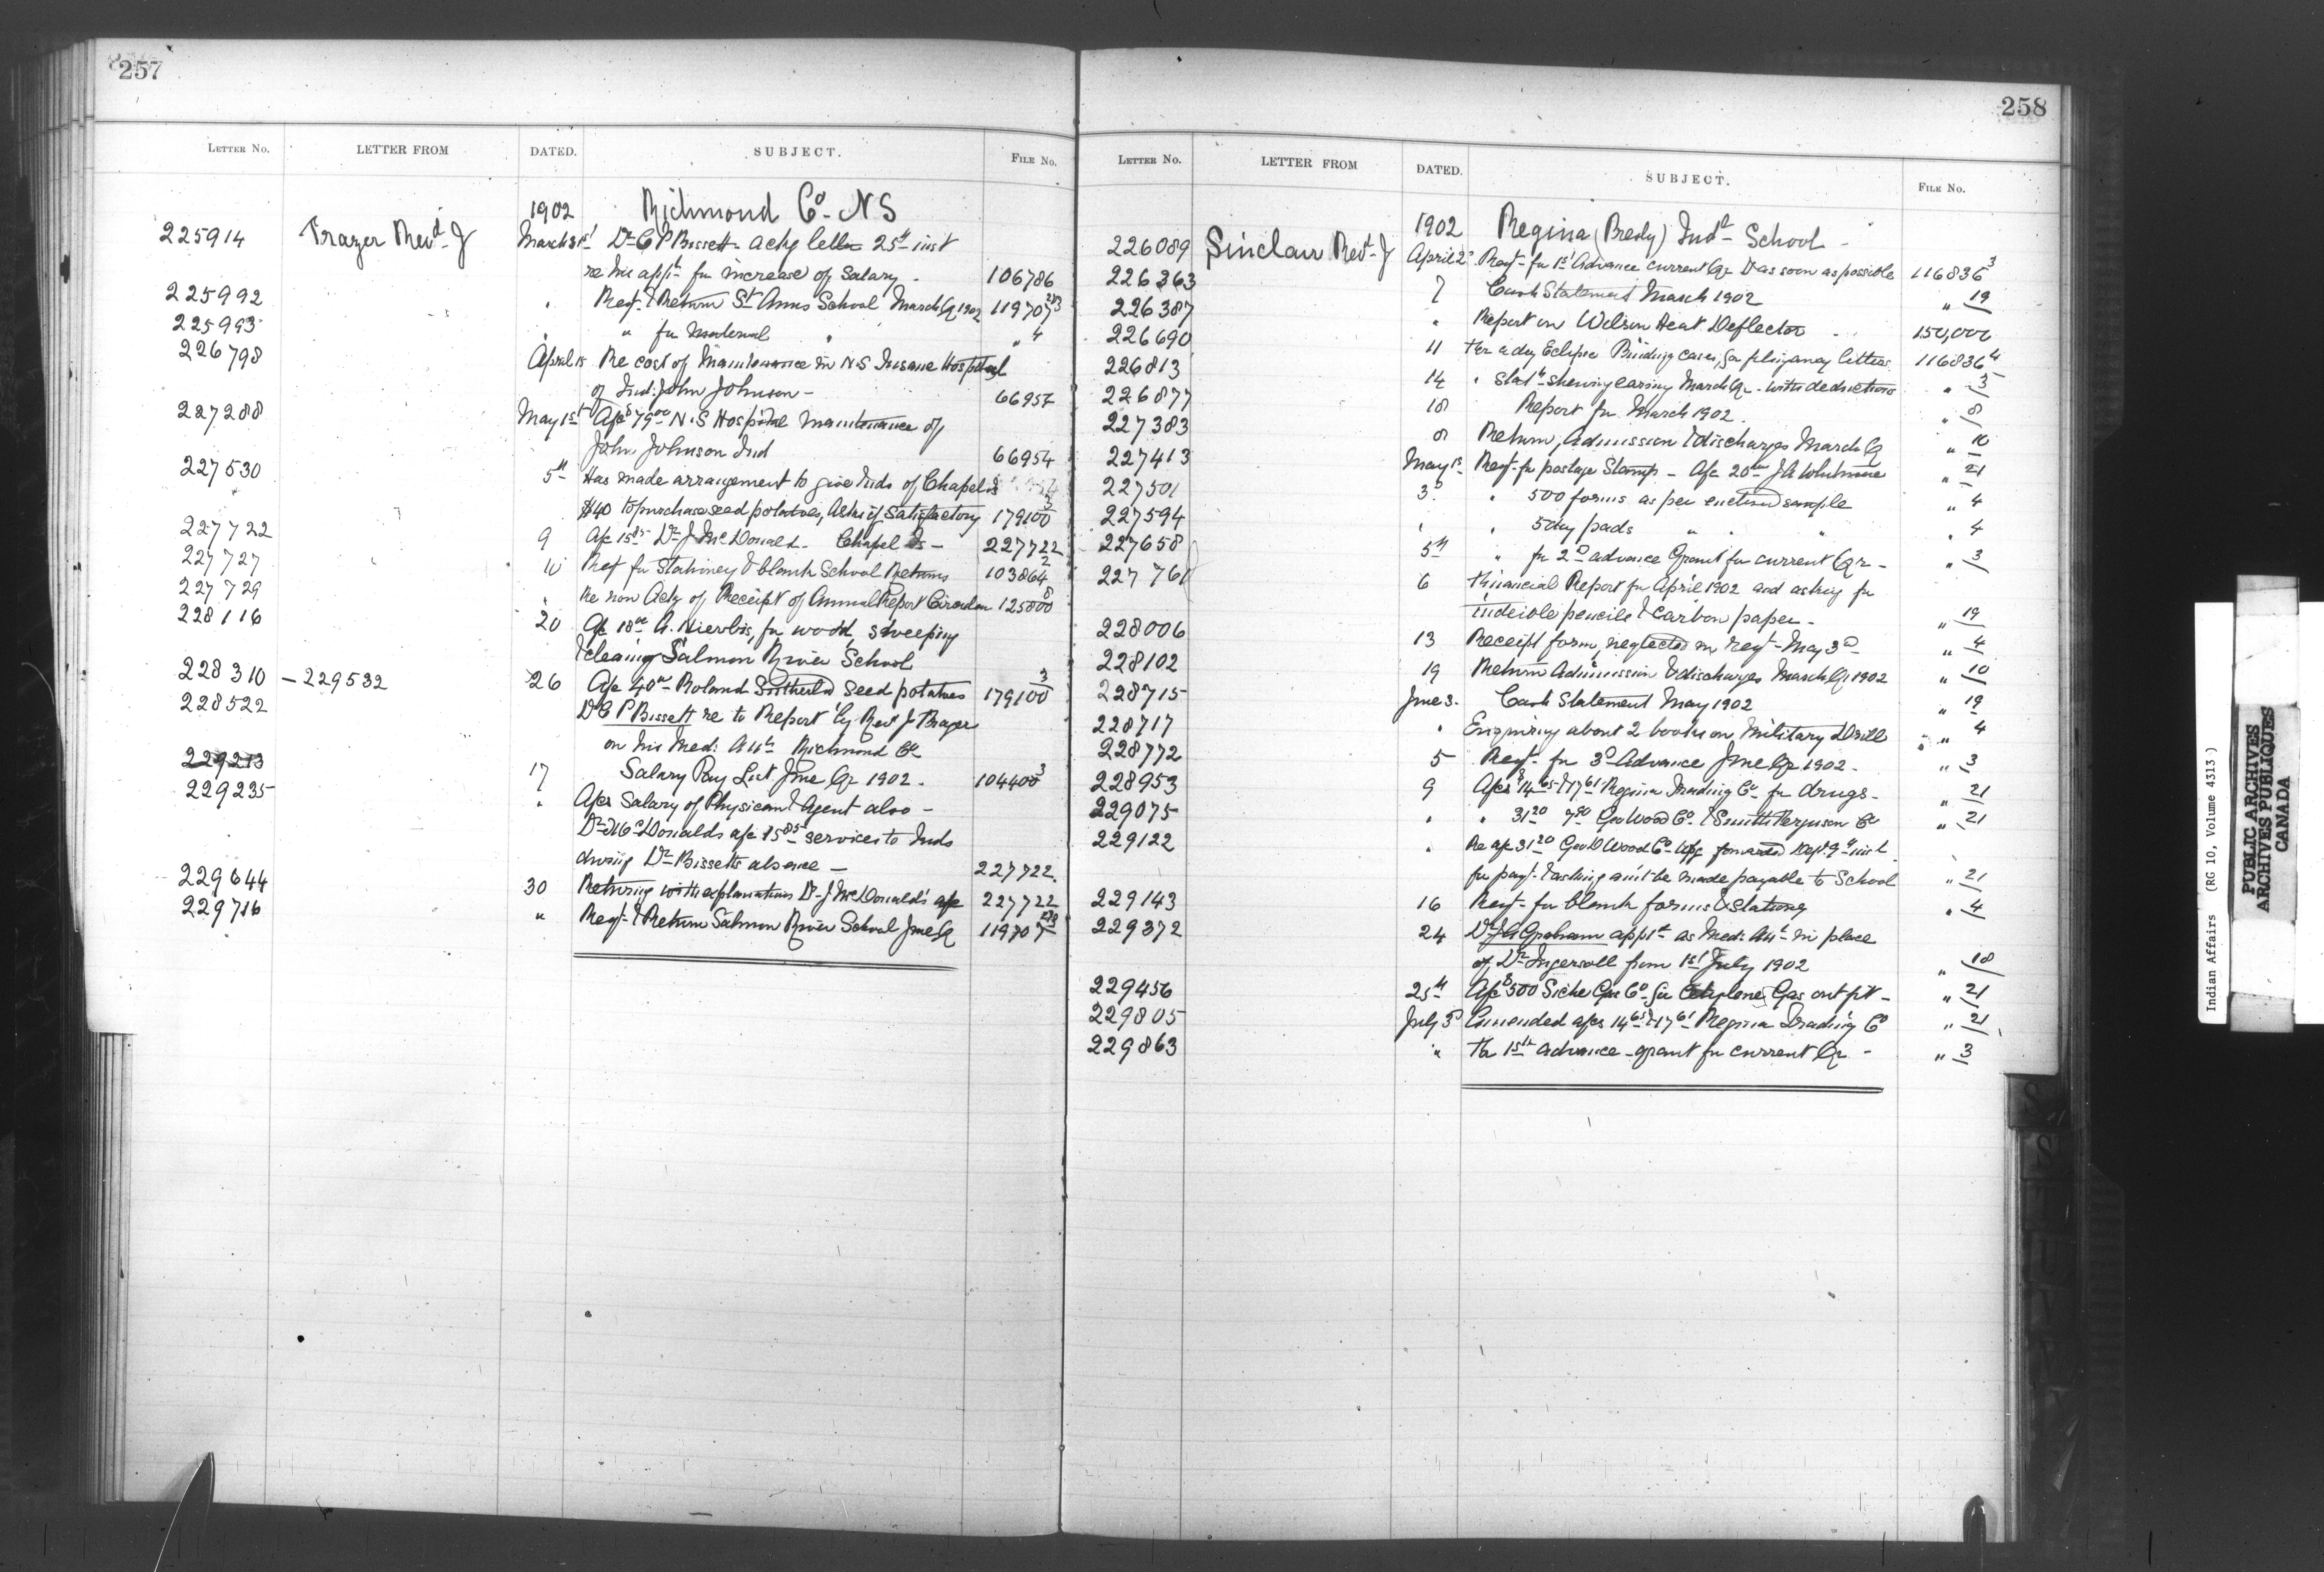 257
LETTER No. LETTER FROM DATED. SUBJECT. FILE No.
1902 Richmond Co. N S
225914 Frazer Revd J March 31st Dr C P Bissett ackg letter 25th inst
re his appn for increase of Salary - 106786
225992 " Reqt & Return St Anns School March Qr 1902 119707
225993 " " for Material " " 4
226798 April 15 Re cost of Maintenance in N.S Insane Hospital
of Ind: John Johnson - 66954
227288 May 1st A/c $79.00 N.S Hospital Maintenance of
John Johnson Ind 66954
227530 5th Has made arrangement to give Inds of Chapel Is
$40 to purchase seed potatoes, Asks if Satisfactory 179100 3
227722 9 A/c 15.85 Dr J McDonald - Chapel Is - 227722
227727 10 Reqt for Stationery & blank School Returns 103864 2
227729 " Re non Ackg of Receipt of Annual Report Circular 125800 8
228116 20 A/c 18.00 A. for wood, sweeping
& cleaning Salmon River School
228310 - 229532 26 A/c 40.00 Roland Sutherld seed potatoes 179100 3
228522 Dr C P Bissett re to Report by Revd J Frazer
on his Med: Attce Richmond Co
229213 17 Salary Pay List June Qr 1902 - 104400 3
229235 " A/cs Salary of Physician & Agent also -
Dr McDonalds a/c 15.85 services to Inds
during Dr Bissetts absence - 227722
229644 30 Returning with explanations Dr J McDonald's a/c 227722
229716 " Reqt & Return Salmon River School June Qr 119707
258
LETTER No. LETTER FROM DATED. SUBJECT. FILE No.
1902 Regina (Presby) Indl School -
226089 Sinclair Revd J April 2d Reqt for 1st Advance current Qr & as soon as possible 116836 3
226363 7 Cash Statement March 1902 " 19
226387 " Report on Wilson Heat Deflector - 150,000
226690 11 For Eclipse Binding cases, for filing away letters 116836 4
226813 14 " Statt shewing earing March Qr - with deductions " 3
226877 18 Report for March 1902. " 8
227383 8 Return, Admission & discharges March Q " 10
227413 May 1st Reqt for postage Stamps - A/c 20.00 J A Whitmore " 21
227501 3d " 500 forms as per enclosed sample " 4
227594 " " 5 day pads " " " " 4
227658 5th " for 2d advance Grant for current Qr - " 3
227761 6 Financial Report for April 1902 and asking for
indelible pencils & carbon paper - " 19
228006 13 Receipt form, neglected in reqt May 3d " 4
228102 19 Return Admission & discharges March Qr 1902 " 10
228715 June 3. Cash Statement May 1902 " 19
228717 " Enquiring about 2 books on Military Drill " 4
228772 5 Reqt for 3d Advance June Qr 1902 - " 3
228953 9 A/cs $14.65 & 17.61 Regina Trading Co for drugs - " 21
229075 " " 31.20 7.90 Geo Wood Co & Smith Ferguson Co " 21
229122 " Re a/c 31.20 Geo D Wood Co forwarded Dept 9th inst
for payt & asking amt be made payable to School " 21
229143 16 Reqt for blank forms & Stationery " 4
229372 24 Dr J A Graham appt as Med: Att in place
of Dr Ingersoll from 1st July 1902 " 18
229456 25th A/c $500 Siche Gas Co for Cetylene Gas out fit - " 21
229805 July 3d Amended a/cs 14.65 & 17.61 Regina Trading Co " 21
229863 " For 1st advance - grant for current Qr - " 3
Indian Affairs (RG 10, Volume 4313)
PUBLIC ARCHIVES
ARCHIVES PUBLIQUES
CANADA